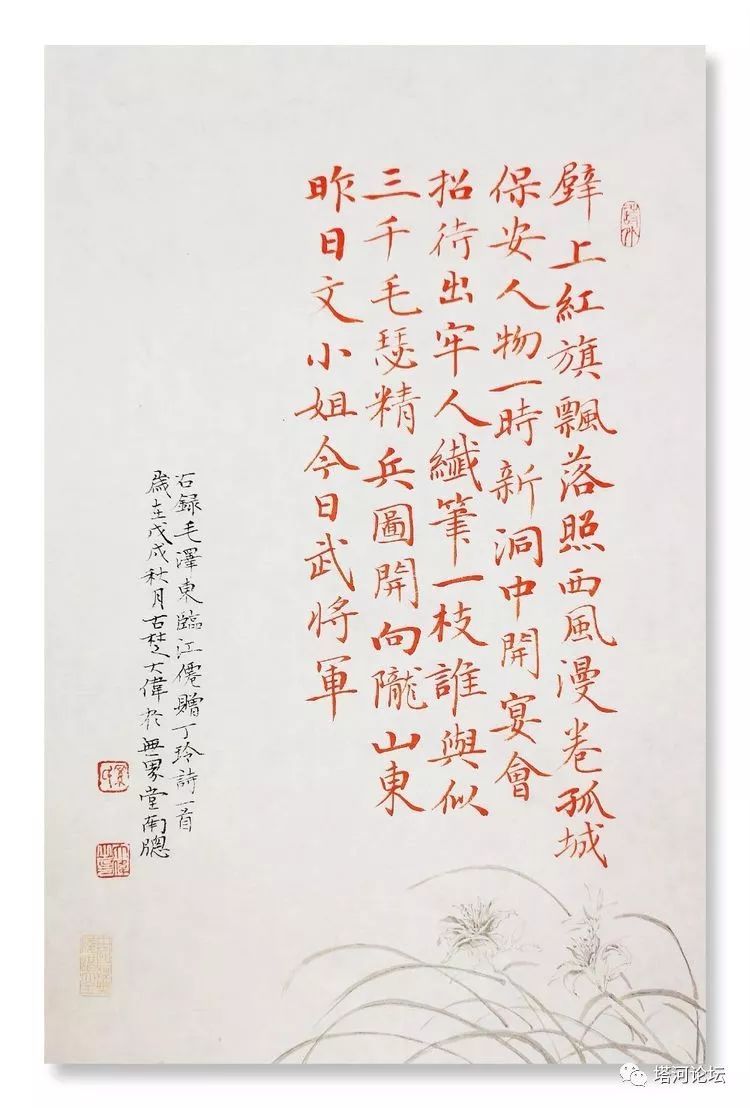 壁上紅旗飄落照西風漫卷孤城
保安人物一時新洞中開宴會
招待出牢人纖筆一枝誰與似
三千毛瑟精兵圖開向隴山東
昨日文小姐今日武将軍
右録毛澤東臨江僊贈丁玲詩一首
歲在戊戌秋月古楚大偉於無堂南牕
塔河论坛